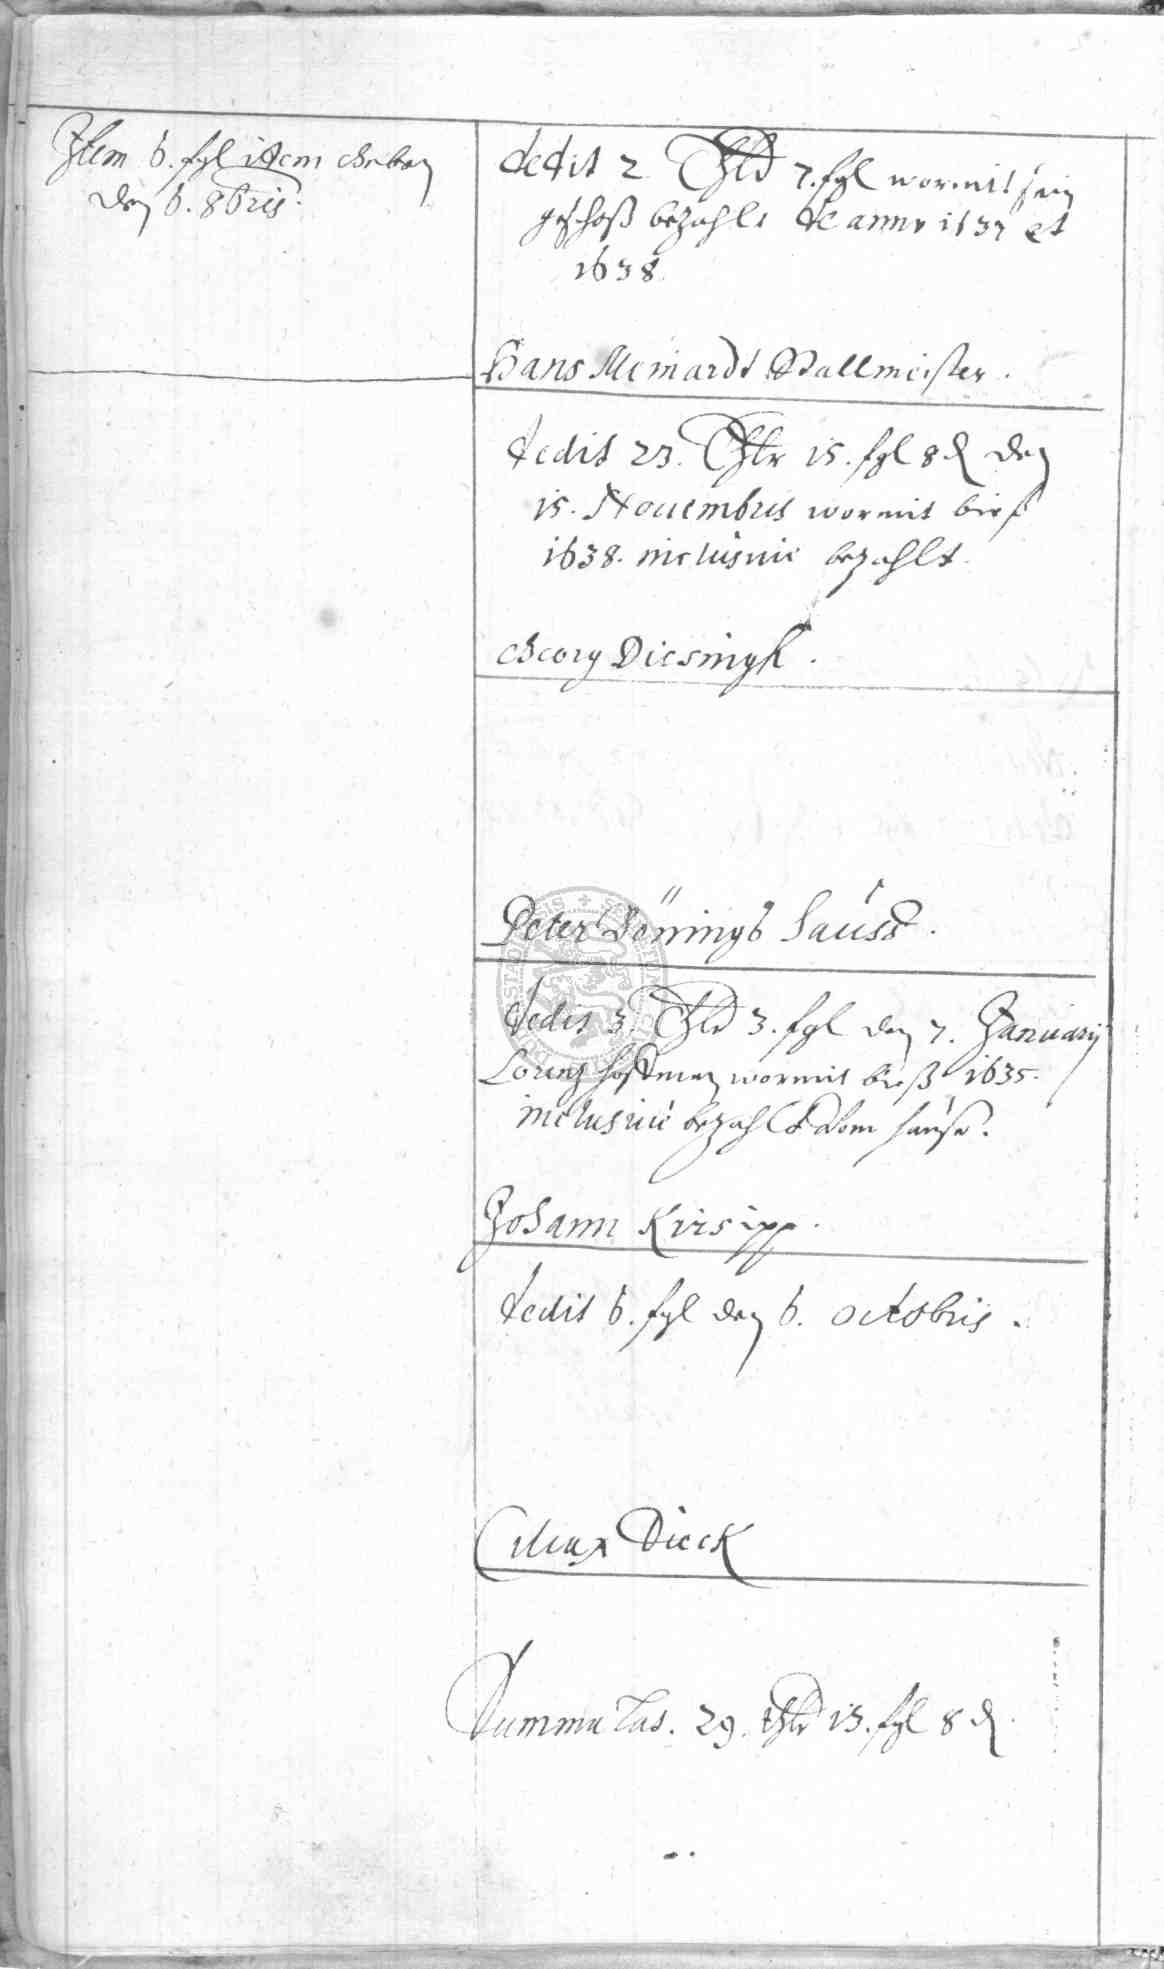 Item 6. sgl item geben
den 6. 8bris.
dedit 2 Thlr 7. sgl wormit sein
geschoß bezahlt de anno 1637 et
1638.
Hans Meinardt Ballmeister.
dedit 23. Thlr 15. sgl 8 d den
15. Nouembris wormit bieß
1638. inclusiuè bezahlt.
Georg Diesingk.
Peter Hauss.
dedit 3. Thlr 3. sgl den 7. Januarij
Lorenz wormit bieß 1635.
inclusiuè bezahlt vom hause.
Johann Krisipp.
dedit 6. sgl den 6. octobris.
Dieck
Summa Lat. 29. thlr 13. sgl 8 d